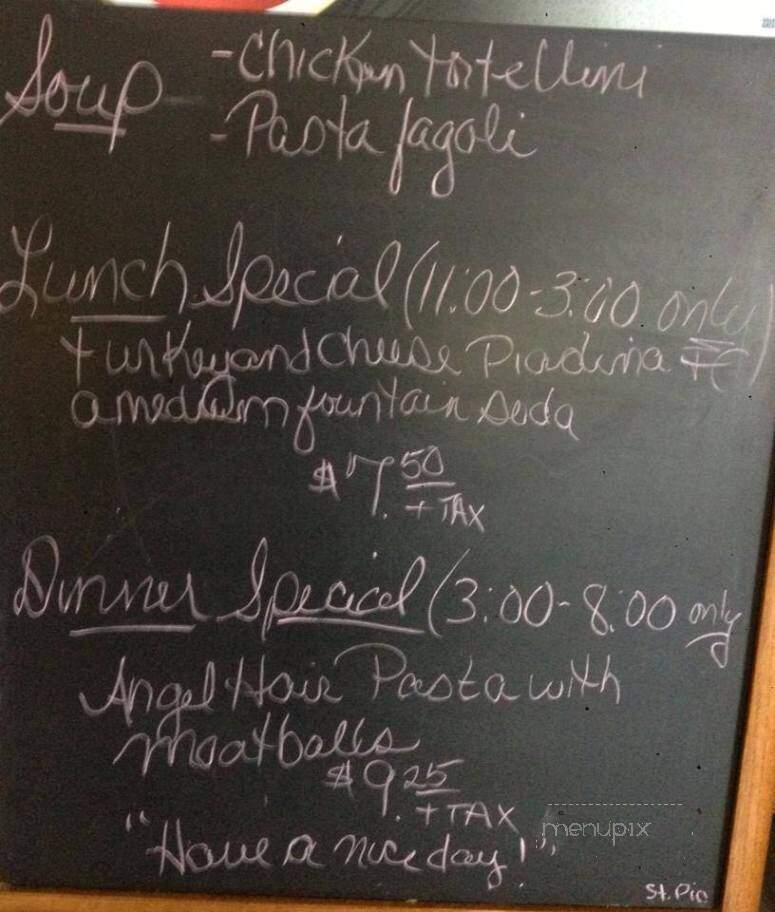 Soup - Chicken Tortellini
- Pasta fagoli
Lunch Special (11:00-3:00 only)
turkey and Cheese Piadina
a medium fountain soda
$7.50
+ TAX
Dinner Special (3:00-8:00 only
Angel Hair Pasta with
meatballs
$9.25
+ TAX
"Have a nice day!"
menupix
St. Pio